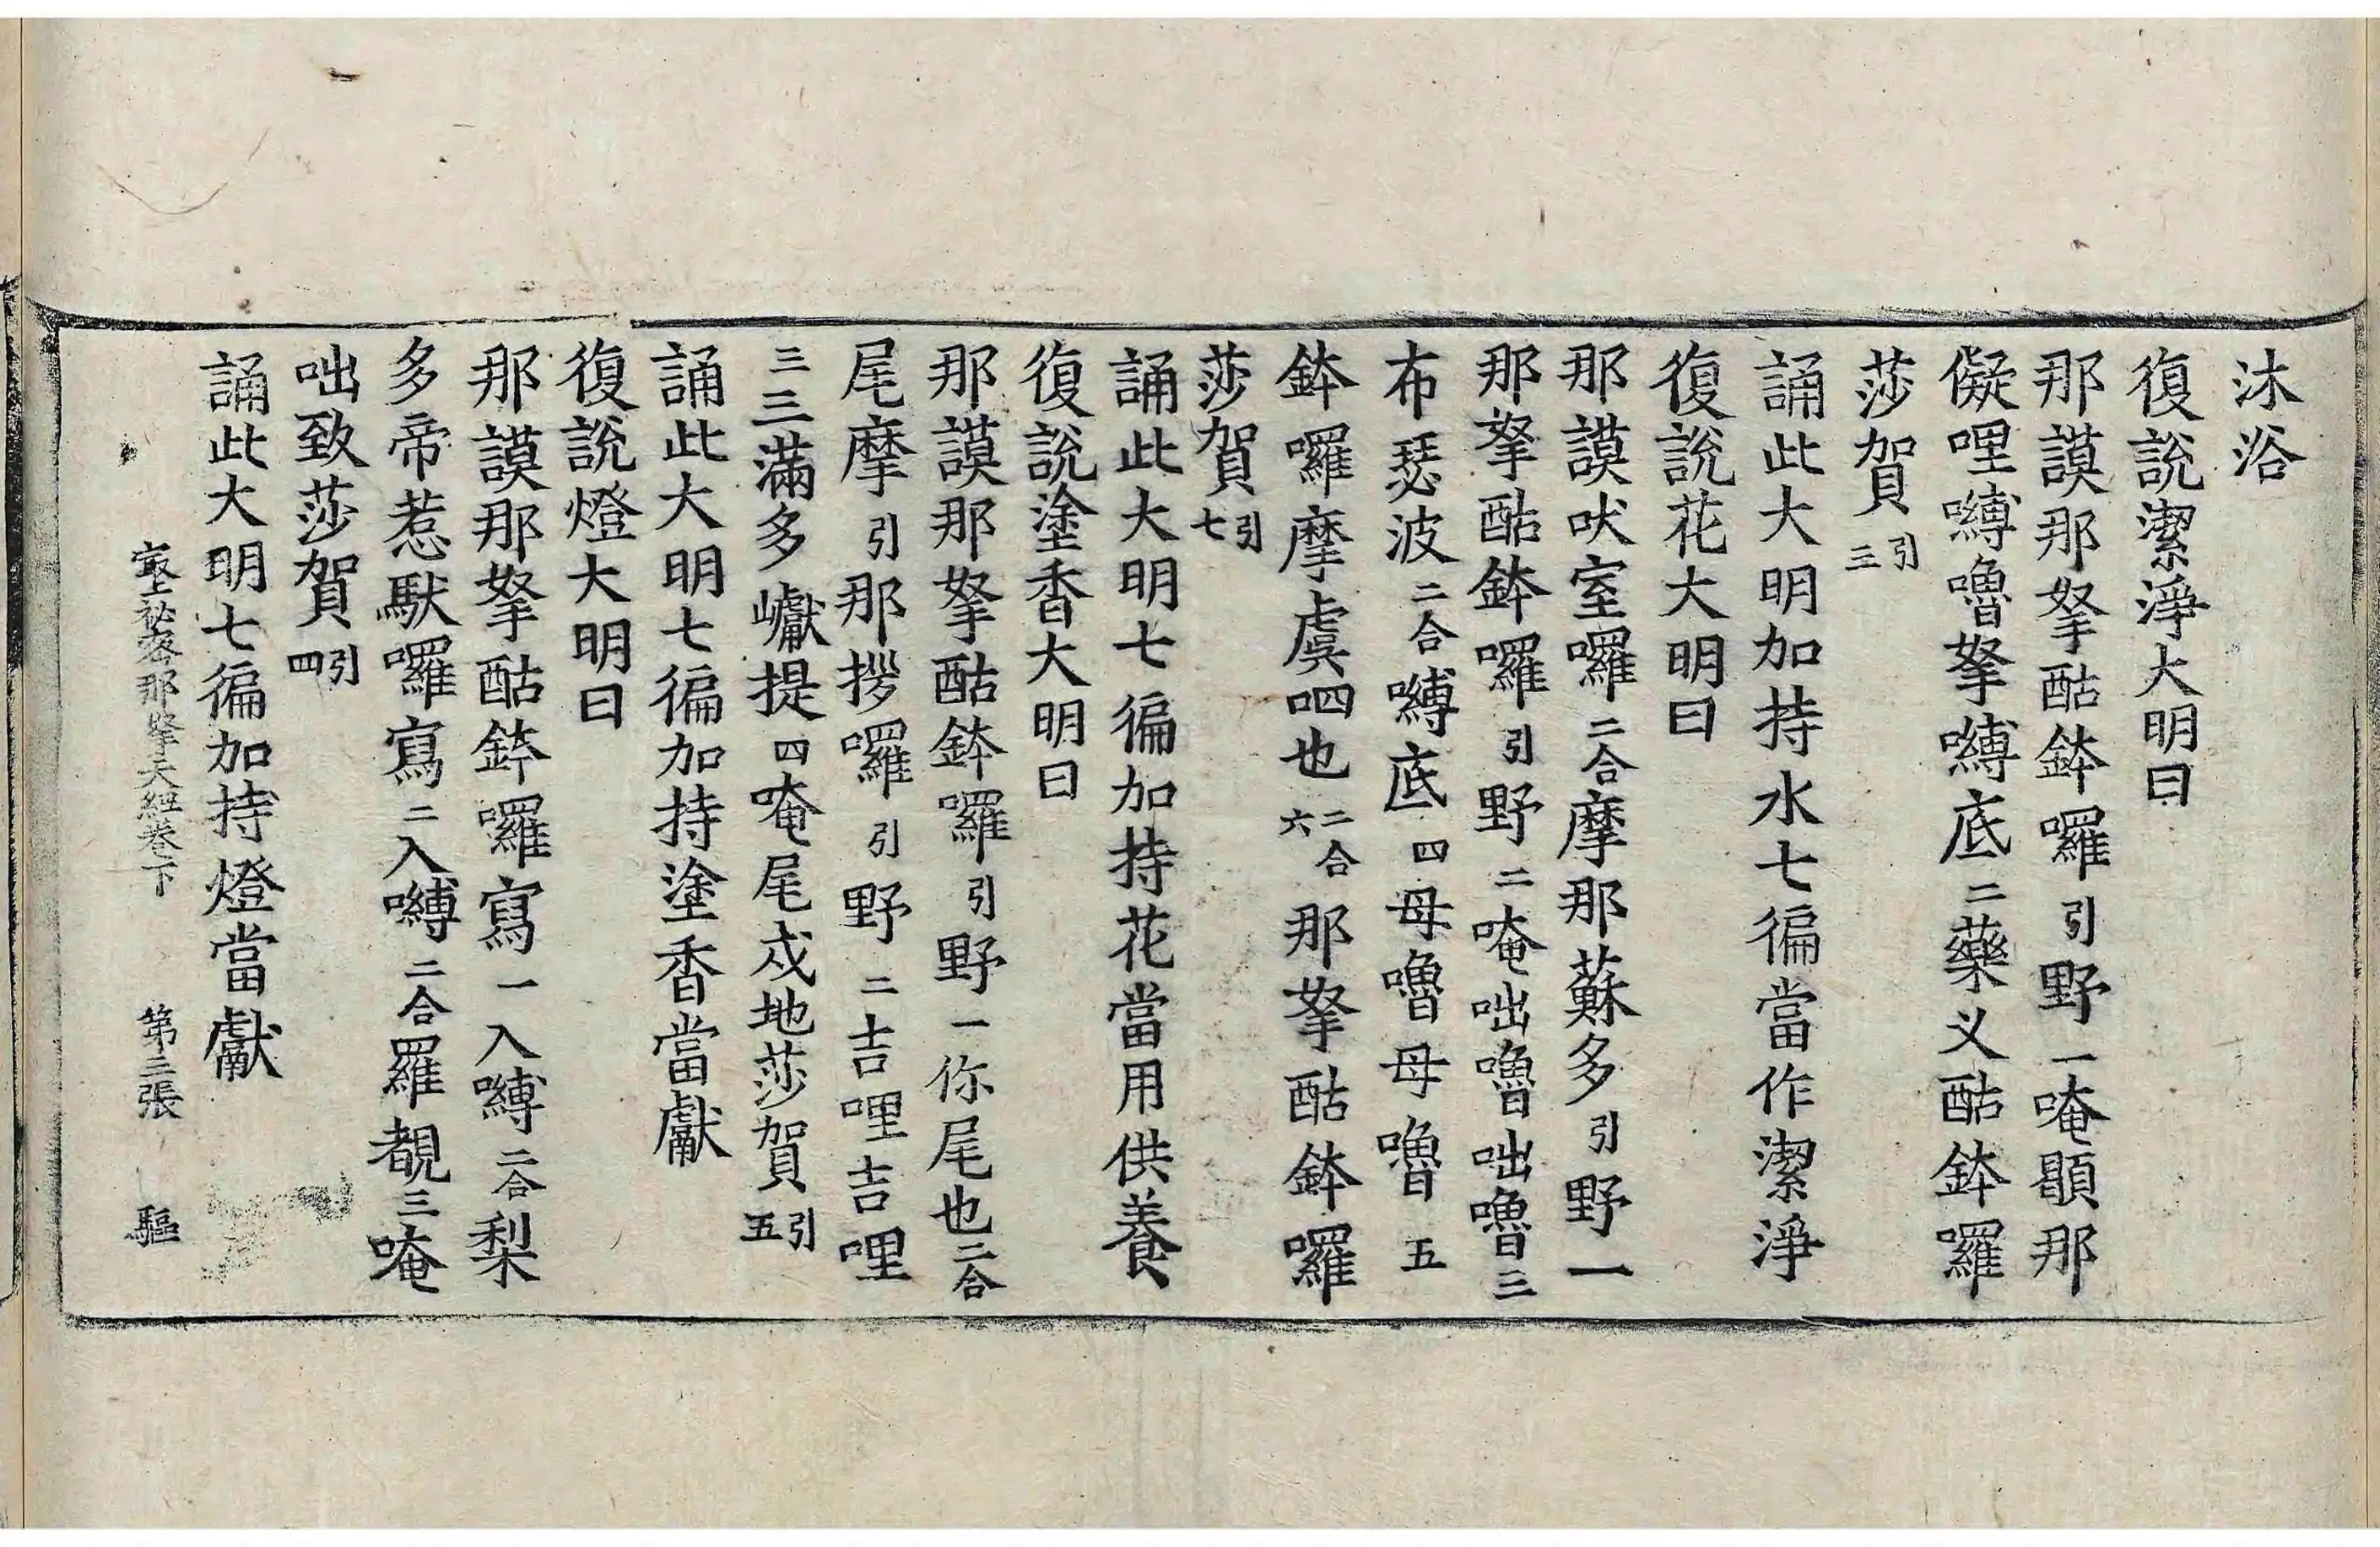 沐浴
復說潔淨大明曰
那謨那拏酤鉢囉引野一唵顋那
儗哩嚩嚕拏嚩底二藥义酤鉢囉
莎賀引三
誦此大明加持水七徧當作潔淨
復說花大明曰
那謨吠室囉二合摩那蘇多引野一
那拏酤鉢囉引野二唵咄嚕咄嚕三
布瑟波二合嚩底四母嚕母嚕五
鉢囉摩虞呬也二合六那拏酤鉢囉
莎賀引七
誦此大明七徧加持花當用供養
復說塗香大明曰
那謨那拏酤鉢囉引野一你尾也二合
尾摩引那拶囉引野二吉哩吉哩
三三滿多巘提四唵尾戍地莎賀引五
誦此大明七徧加持塗香當獻
復說燈大明曰
那謨那拏酤鉢囉寫一入嚩二合梨
多帝惹馱囉寫二入嚩二合羅覩三唵
咄致莎賀引四
誦此大明七徧加持燈當獻
最上祕密那拏天經卷下 第三張 驅